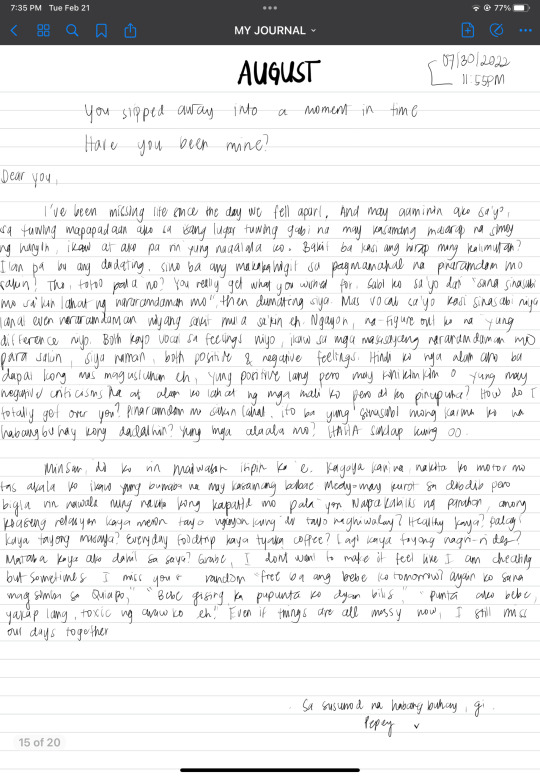 7:35 PM Tue Feb 21
77%
MY JOURNAL
07/30/2022
11:55PM
AUGUST
You slipped away into a moment in time
Have you been mine?
Dear you,
I've been missing life since the day we fell apart. And may aaminin ako sa'yo,
sa tuwing mapapadaan ako sa isang lugar tuwing gabi na may kasamang masarap na simoy
ng hangin, ikaw at ako pa rin yung naaalala ko. Bakit ba kasi ang hirap mong kalimutan?
Ilan pa ba ang dadating, sino ba ang makakahigit sa pagmamahal na pinaramdam mo
sakin? Tho, totoo pala no? You really get what you wished for. Sabi ko sa'yo dati "sana sinasabi
mo sa'kin lahat ng nararamdaman mo" then dumating siya. Mas vocal sa'yo kasi sinasabi niya
lahat even nararamdaman niyang sakit mula sa'kin eh. Ngayon, na-figure out ko na yung
difference niyo. Both kayo vocal sa feelings niyo, ikaw sa mga masasayang nararamdaman mo
para sakin, siya naman, both positive & negative feelings. Hindi ko nga alam ano ba
dapat kong mas magustuhan eh, yung positive lang pero may kinikimkim o yung may
negative criticisms na at alam ko lahat ng mga mali ko pero di ko pinupuna? How do I
totally get over you? Pinaramdam mo sakin lahat, ito ba yung sinusabi mong karma ko na
habangbuhay kong dadalhin? Yung mga alaala mo? HAHA saklap kung oo.
Minsan, di ko rin maiwasan isipin ka e. Kagaya kanina, nakita ko motor mo
tas akala ko ikaw yung bumaba na may kasamang babae. Medyo may kurot sa dibdib pero
bigla rin nawala nung nakita kong kapatid mo pala yon. Napakabilis ng panahon, anong
klaseng relasyon kaya meron tayo ngayon kung di tayo naghiwalay? Healthy kaya? palagi
kaya tayong masaya? everyday foodtrip kaya tyaka coffee? Lagi kaya tayong nagri-rides?
Mataba kaya ako dahil sa sayo? Grabe, I dont want to make it feel like I am cheating
but sometimes I miss your random "free ba ang bebe ko tomorrow? ayain ko sana
mag simba sa Quiapo," "Bebe gising ka pupunta ko dyan bilis," "punta ako bebe,
yakap lang, toxic ng araw ko eh!" Even if things are all messy now, I still miss
our days together
Sa susunod na habang buhay, gi.
Pepey
15 of 20